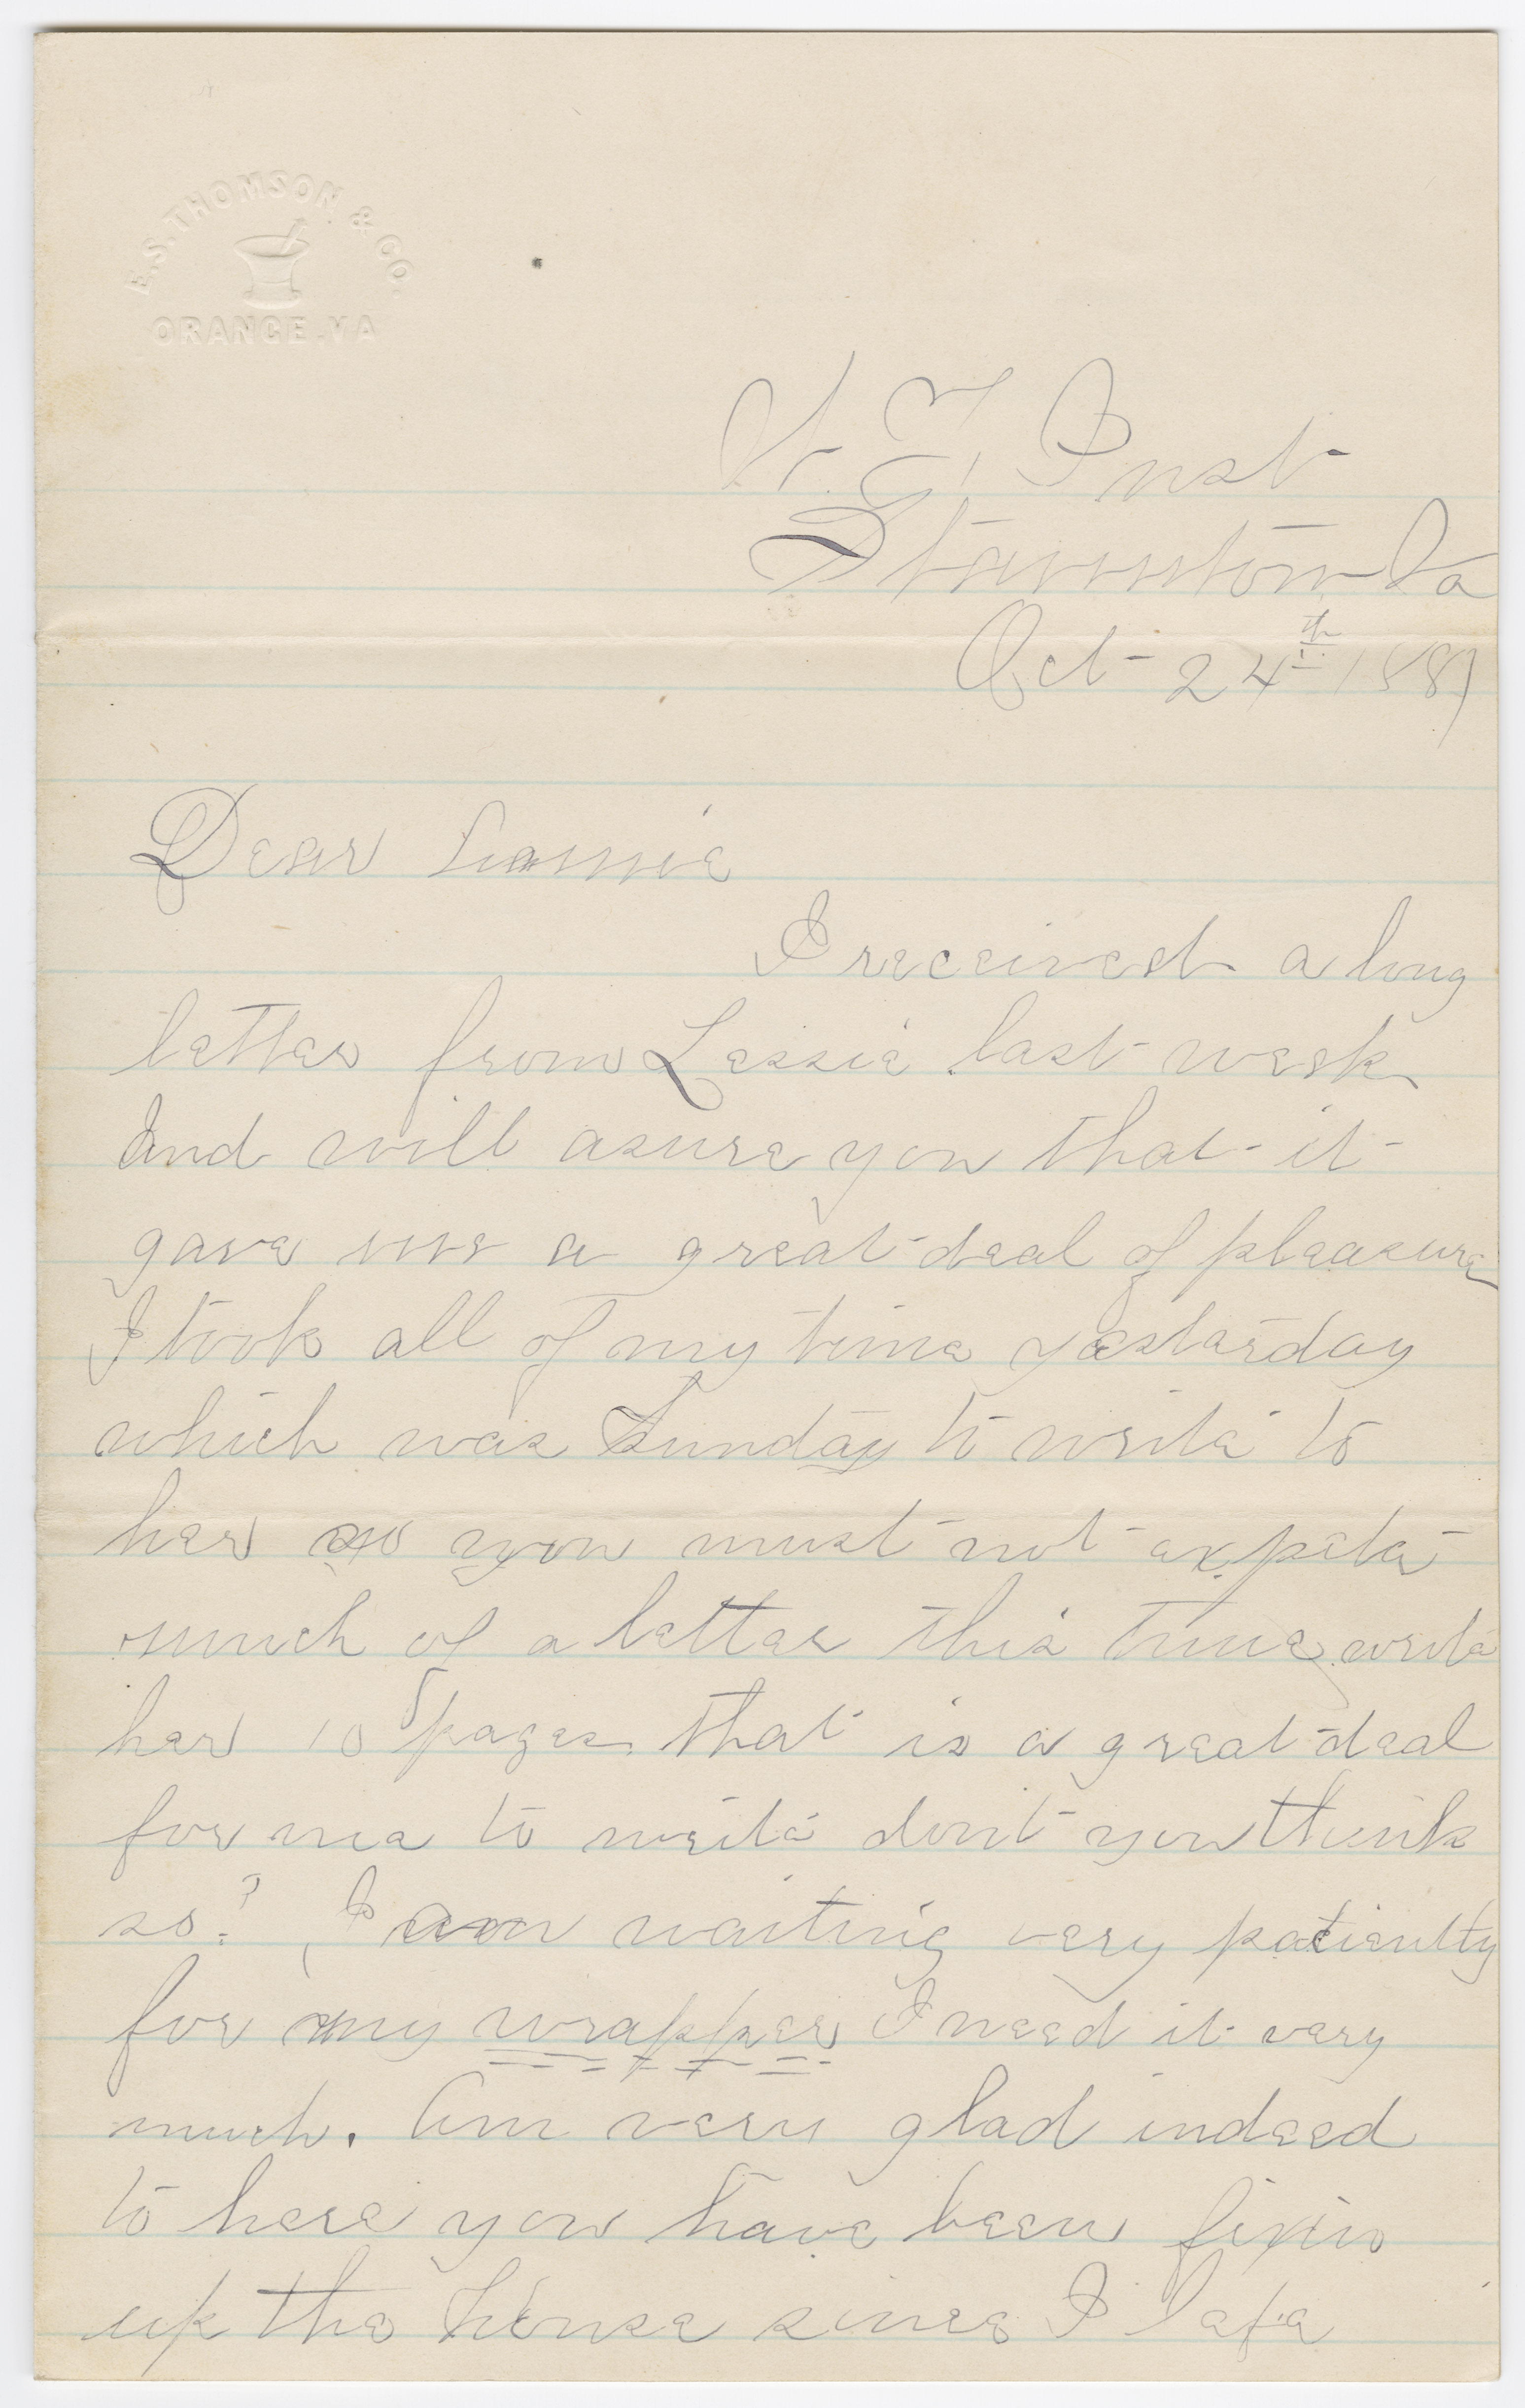 E. S. THOMSON & CO.
ORANGE. VA
W. E. Inst
Staunton Va
Oct 24th 1887
Dear
I received a long
letter from Lessie last week
and will asure you that it
gave me a great deal of pleasure
I took all of my time yestarday
which was Sunday to write to
her so you must not expete
much of a letter this time, write
her 10 pages. that is a great deal
for me to write dont you think
so? I am waiting very patiently
for my wrapper I need it very
much. Am very glad indeed
to here you have been fixin
up the house since I lefe